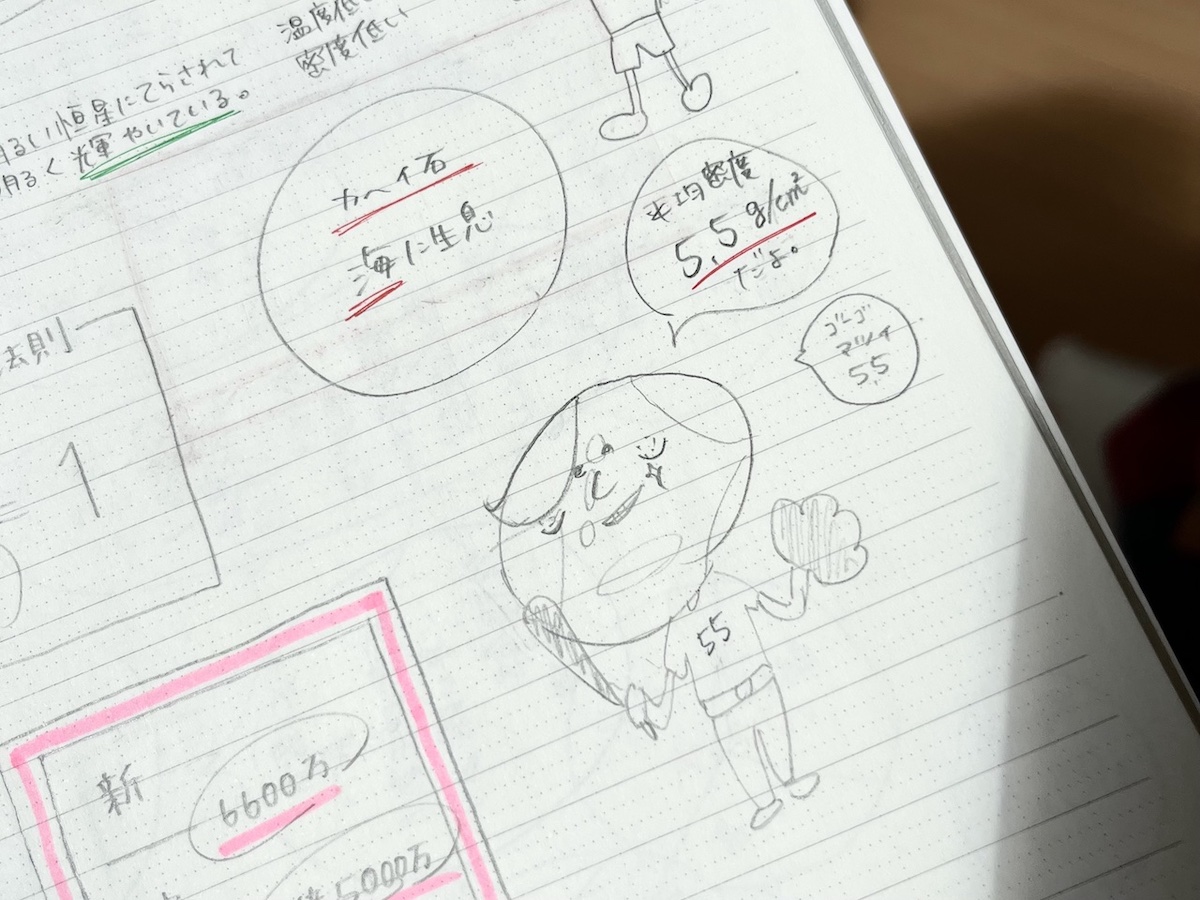 温度低い
密度低い
明るい恒星にてらされて
明るく輝やいている。
カヘイ石
海に生息
平均密度
5.5 g/cm²
だよ。
ゴーゴー
マツイ
55
法則
= 1
55
新
6600万
5000万